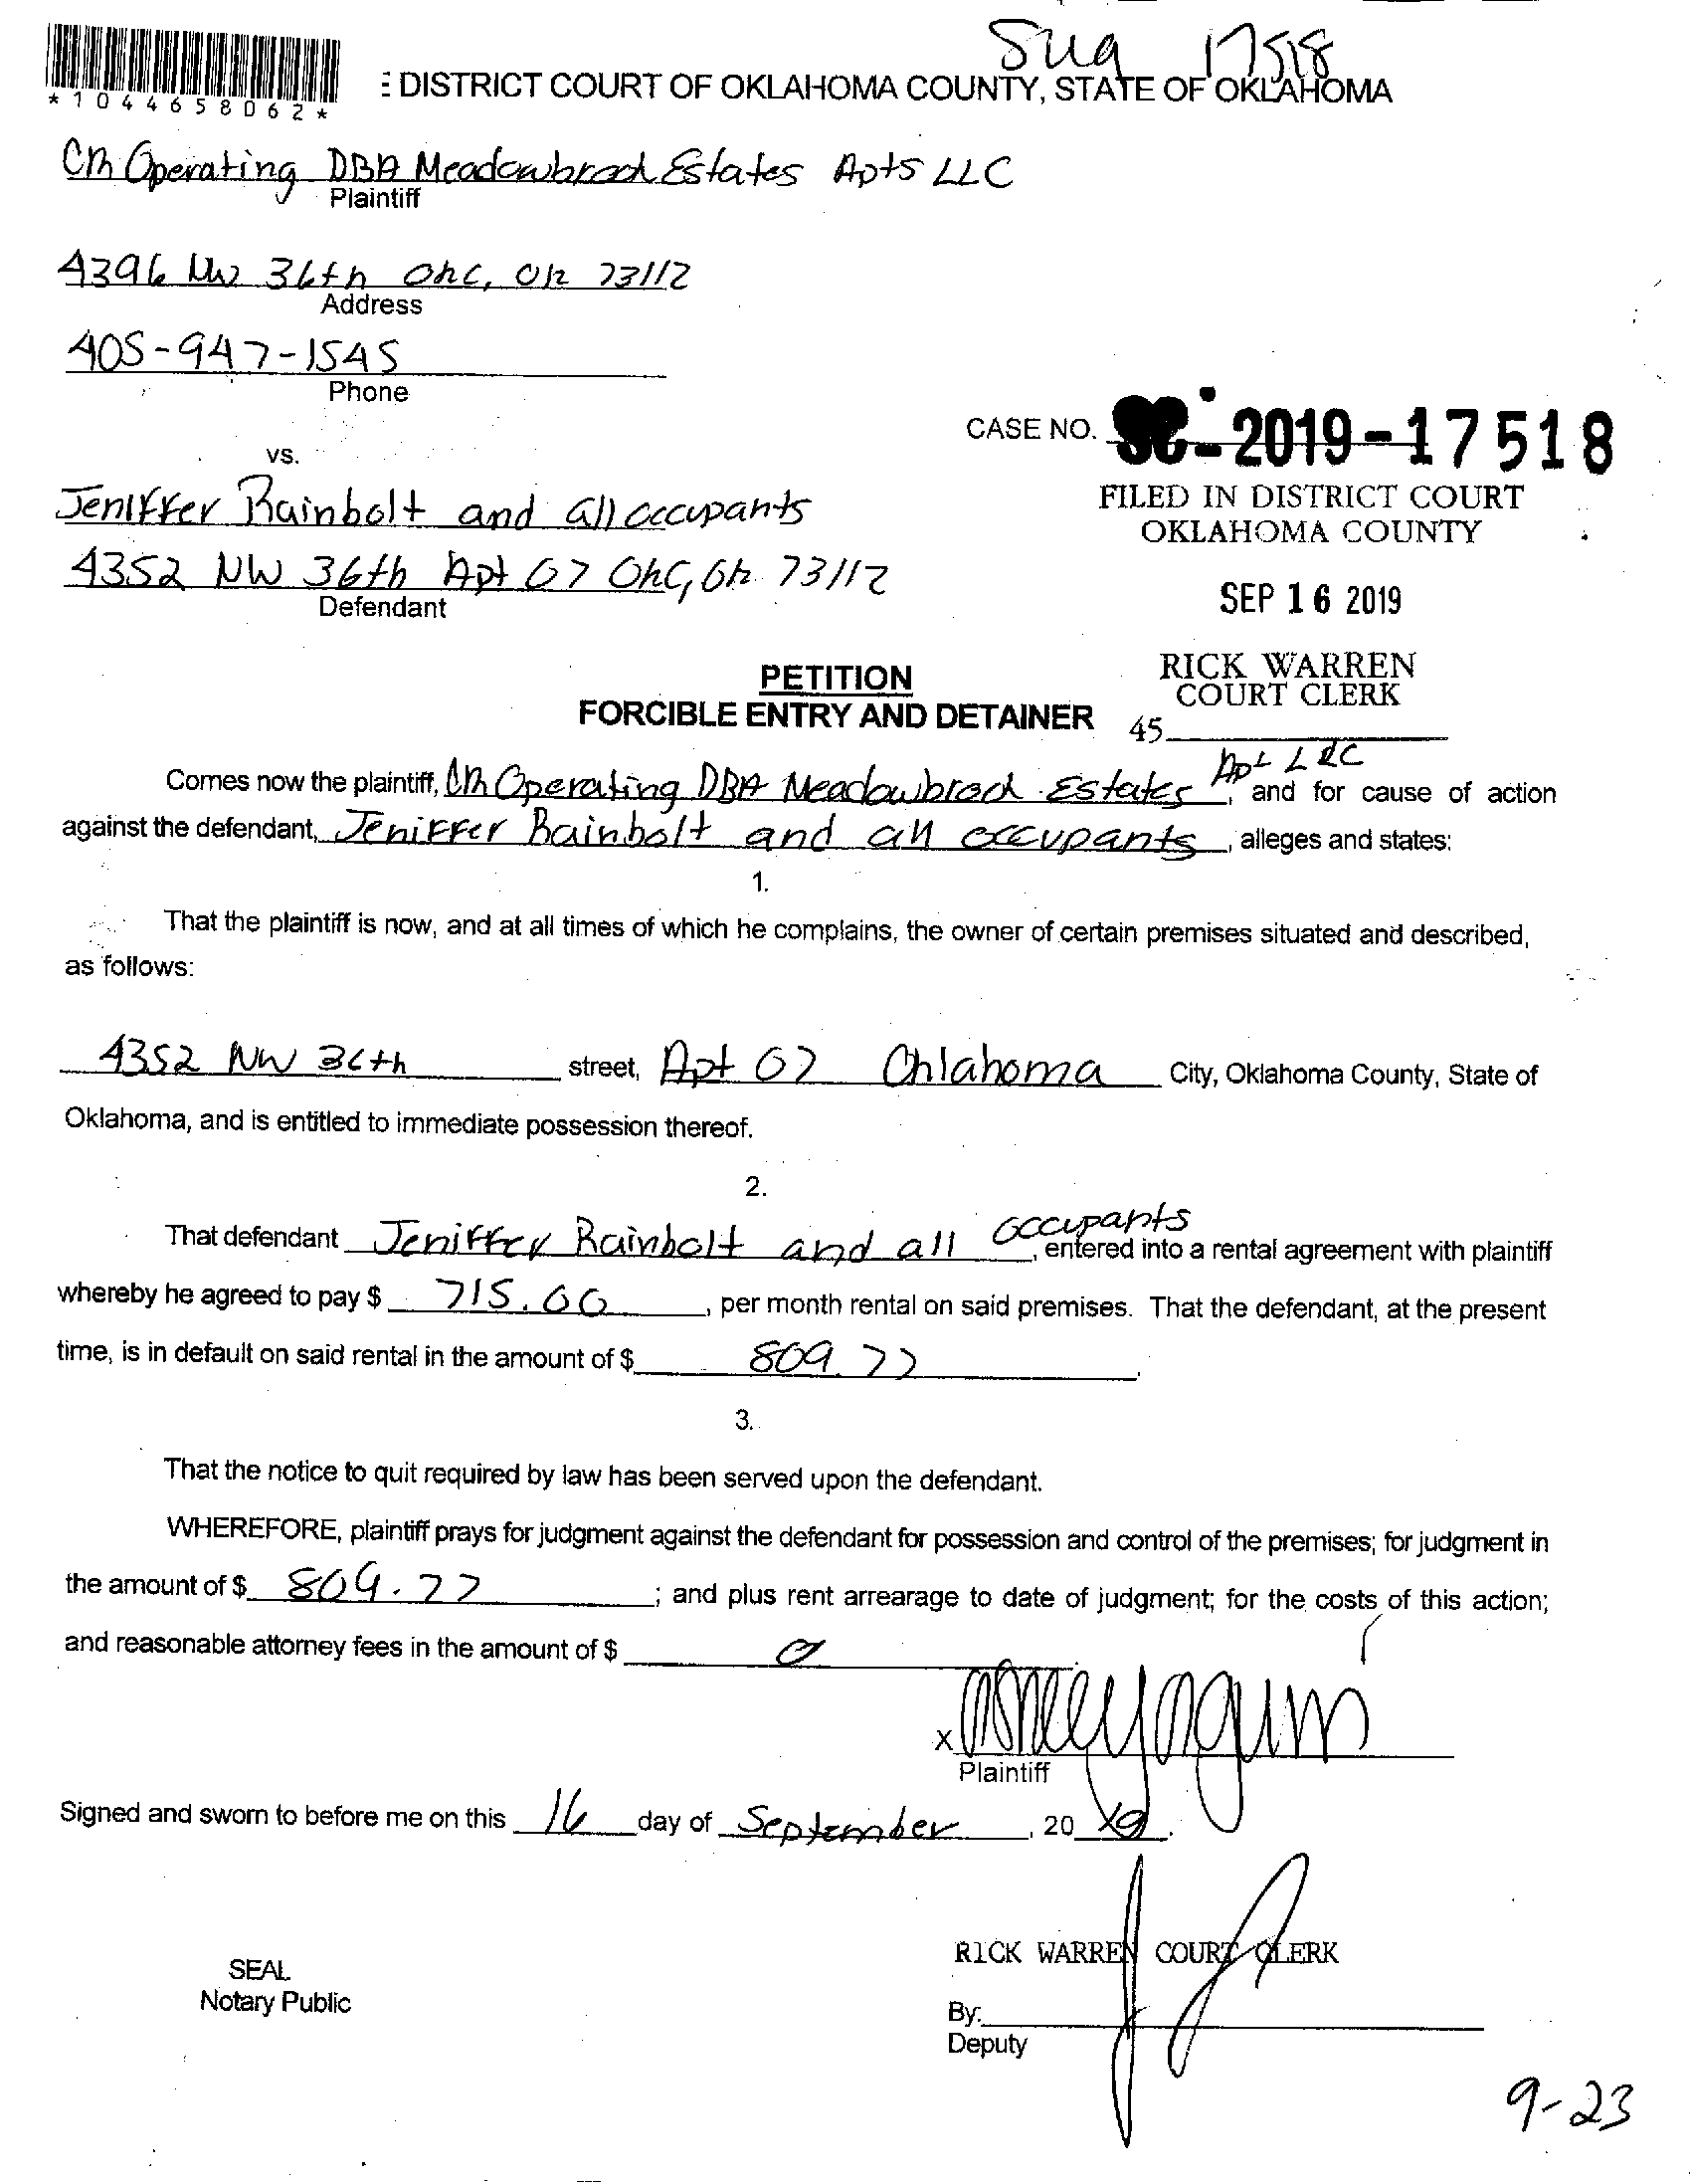 *1044658062*
DISTRICT COURT OF OKLAHOMA COUNTY, STATE OF OKLAHOMA
Operating DBA Meadowbrook Estates Apts LLC
Plaintiff
4396 NW 36th OKC, OK 73112
Address
405-947-1545
Phone
CASE NO. SC-2019-17518
vs.
FILED IN DISTRICT COURT
OKLAHOMA COUNTY
Jeniffer Rainbolt and all occupants
4352 NW 36th Apt 07 OKC, OK 73112
Defendant
SEP 16 2019
RICK WARREN
COURT CLERK
45
PETITION
FORCIBLE ENTRY AND DETAINER
Comes now the plaintiff, Operating DBA Meadowbrook Estates Apt LLC, and for cause of action
against the defendant, Jeniffer Rainbolt and all occupants, alleges and states:
1.
That the plaintiff is now, and at all times of which he complains, the owner of certain premises situated and described,
as follows:
4352 NW 36th street, Apt 07 Oklahoma City, Oklahoma County, State of
Oklahoma, and is entitled to immediate possession thereof.
2.
That defendant Jeniffer Rainbolt and all occupants, entered into a rental agreement with plaintiff
whereby he agreed to pay $ 715.00, per month rental on said premises. That the defendant, at the present
time, is in default on said rental in the amount of $ 809.77.
3.
That the notice to quit required by law has been served upon the defendant.
WHEREFORE, plaintiff prays for judgment against the defendant for possession and control of the premises; for judgment in
the amount of $ 809.77; and plus rent arrearage to date of judgment; for the costs of this action;
and reasonable attorney fees in the amount of $ 0
X
Plaintiff
Signed and sworn to before me on this 16 day of September, 2019.
RICK WARREN COURT CLERK
SEAL
Notary Public
By:
Deputy
9-23